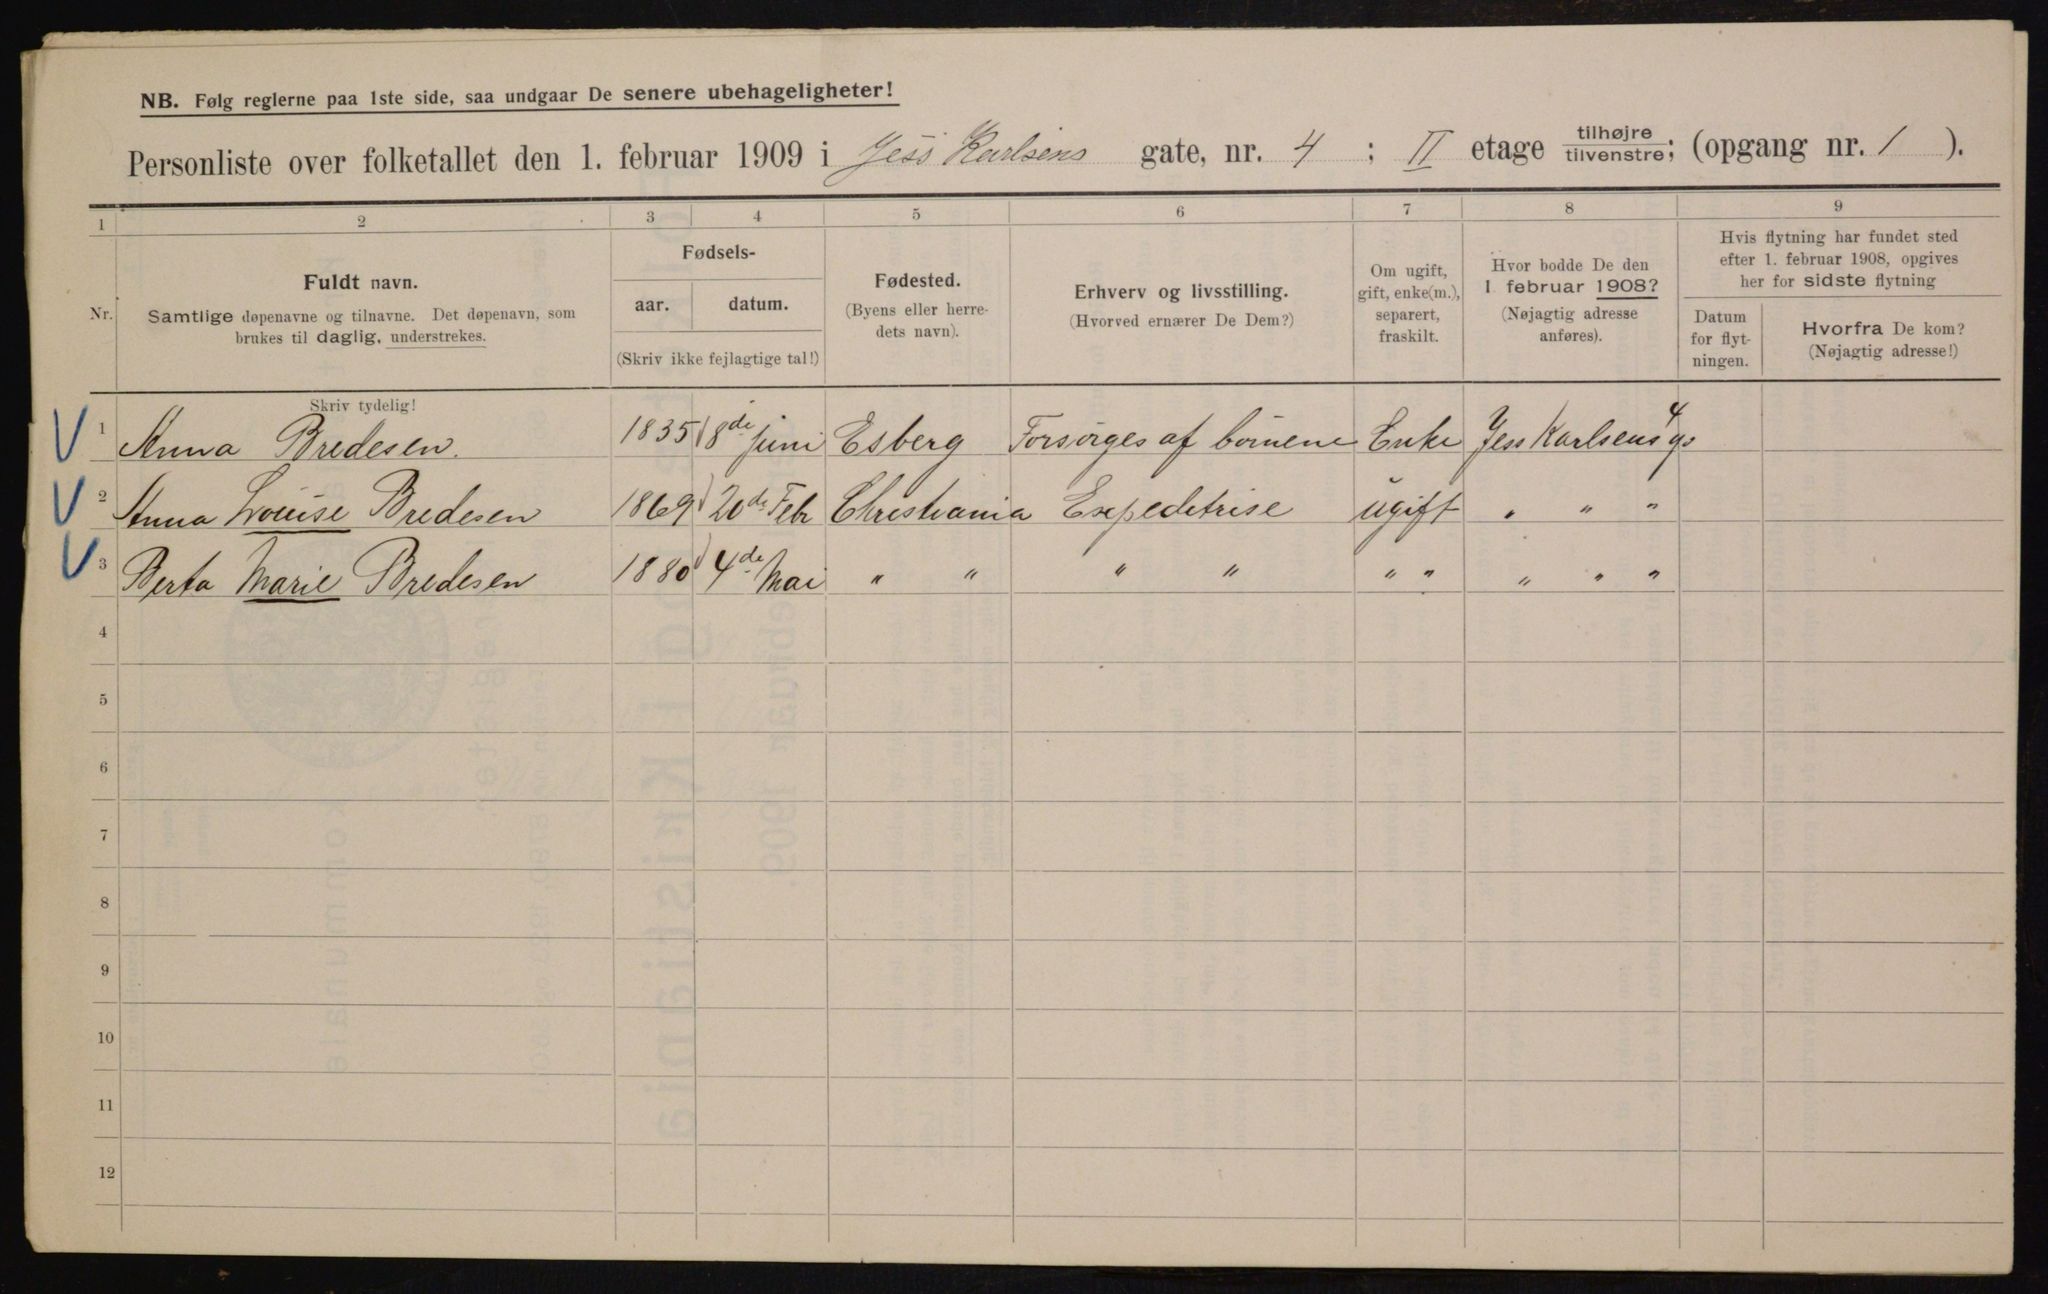 NB. Følg reglerne paa 1ste side, saa undgaar De senere ubehageligheter!
Personliste over folketallet den 1. februar 1909 i Jess Karlsens gate, nr. 4 ; II etage tilhøjre/tilvenstre; (opgang nr. 1 ).
1 2 3 4 5 6 7 8 9
Nr.
Fuldt navn.
Samtlige døpenavne og tilnavne. Det døpenavn, som
brukes til daglig, understrekes.
Skriv tydelig!
Fødsels-
aar. datum.
(Skriv ikke fejlagtige tal!)
Fødested.
(Byens eller herre-
dets navn).
Erhverv og livsstilling.
(Hvorved ernærer De Dem?)
Om ugift,
gift, enke(m.),
separert,
fraskilt.
Hvor bodde De den
1 februar 1908?
(Nøjagtig adresse
anføres).
Hvis flytning har fundet sted
efter 1. februar 1908, opgives
her for sidste flytning
Datum
for flyt-
ningen.
Hvorfra De kom?
(Nøjagtig adresse!)
1 Anna Bredesen. 1835 8de juni Esberg Forsørges af børnene Enke Jess Karlsens g. 4
2 Anna Louise Bredesen 1869 20de Febr Christiania Expeditrise ugift " " "
3 Berta Marie Bredesen 1880 4de Mai " " " " " " " " "
4
5
6
7
8
9
10
11
12